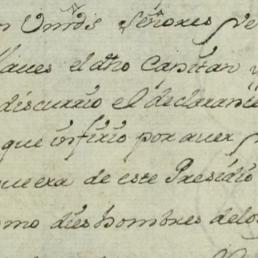 n Unids Señores
llaues el dho Capitan
discurrio el declarante
que infirio por auer
que era de este Presidio
omo dies hombres delo